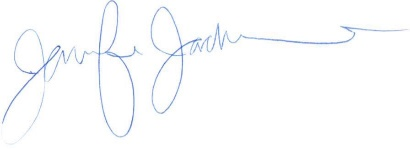 Jennifer Jackson